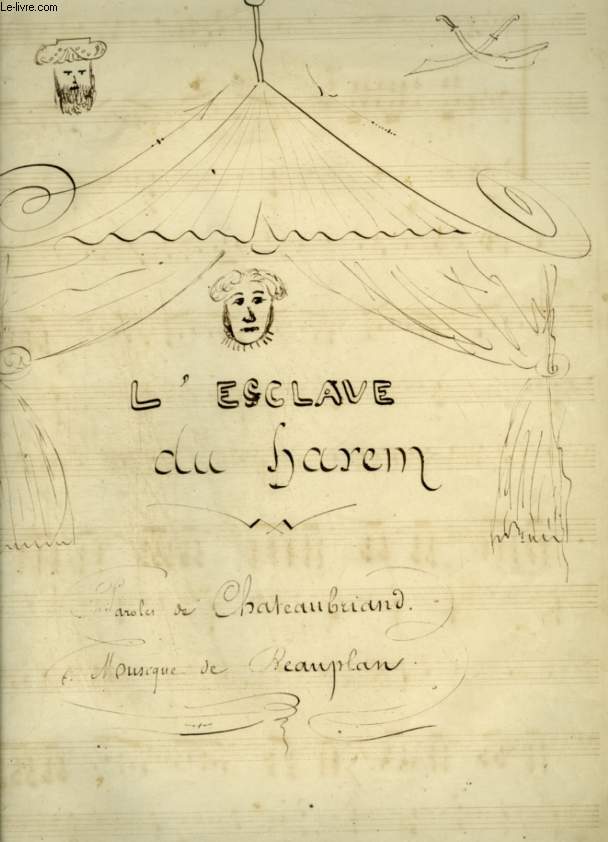 Le-livre.com
L'ESCLAVE
du harem
Paroles de Chateaubriand.
Musique de Beauplan.